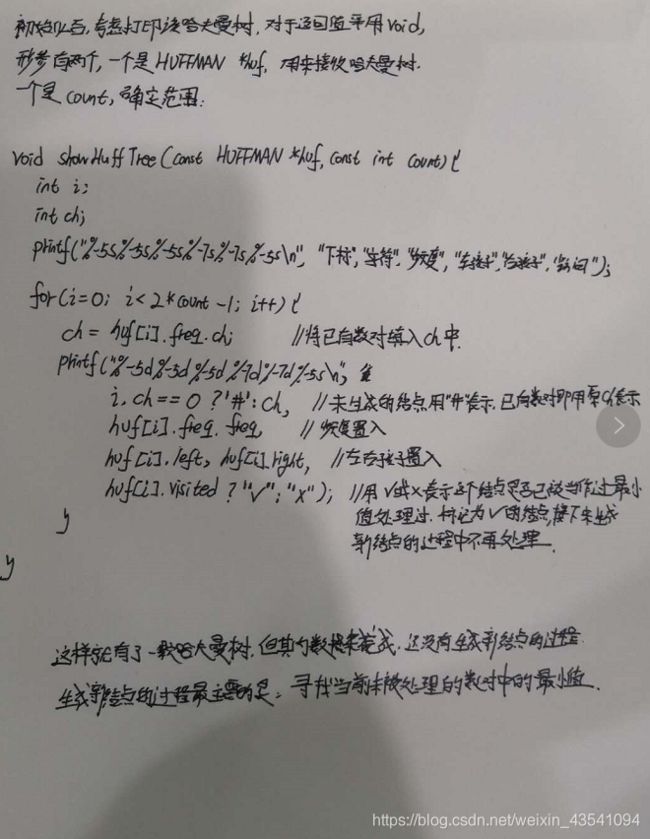 初始化后,考虑打印该哈夫曼树,对于返回值采用void,
形参有两个,一个是 HUFFMAN *huf, 用来接收哈夫曼树.
一个是 count,确定范围:
void showHuffTree(const HUFFMAN *huf, const int count){
int i;
int ch;
printf("%-5s%-5s%-5s%-7s%-7s%-5s\n", "下标","字符","频度","左孩子","右孩子","访问");
for(i=0; i<2*count-1; i++){
ch = huf[i].freq.ch; //将已有数对填入ch中.
printf("%-5d%-5d%-5d%-7d%-7d%-5s\n",
i, ch==0?'#':ch, //未生成的结点用"#"表示,已有数对即用原ch表示
huf[i].freq.freq, //频度置入
huf[i].left, huf[i].right, //左右孩子置入
huf[i].visited?"√":"x"); //用√或x表示这个结点是否已被当作过最小
值处理过.标记为√的结点,接下来生成
新结点的过程中不再处理.
}
}
这样就有了一颗哈夫曼树,但其内数据未完成,还没有生成新结点的过程.
生成新结点的过程最主要的是:寻找当前未被处理的数对中的最小值.
https://blog.csdn.net/weixin_43541094